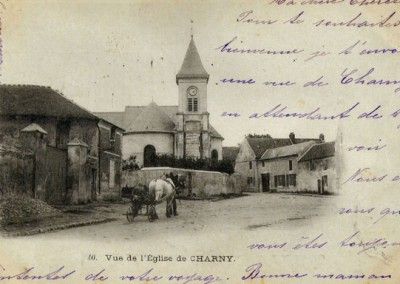 Pour te souhaiter
bienvenue je t'envoie
une vue de Charny
en attendant de t
voir
Nous
vous
vous êtes
40. Vue de l'Église de CHARNY.
de votre voyage. Bonne maman